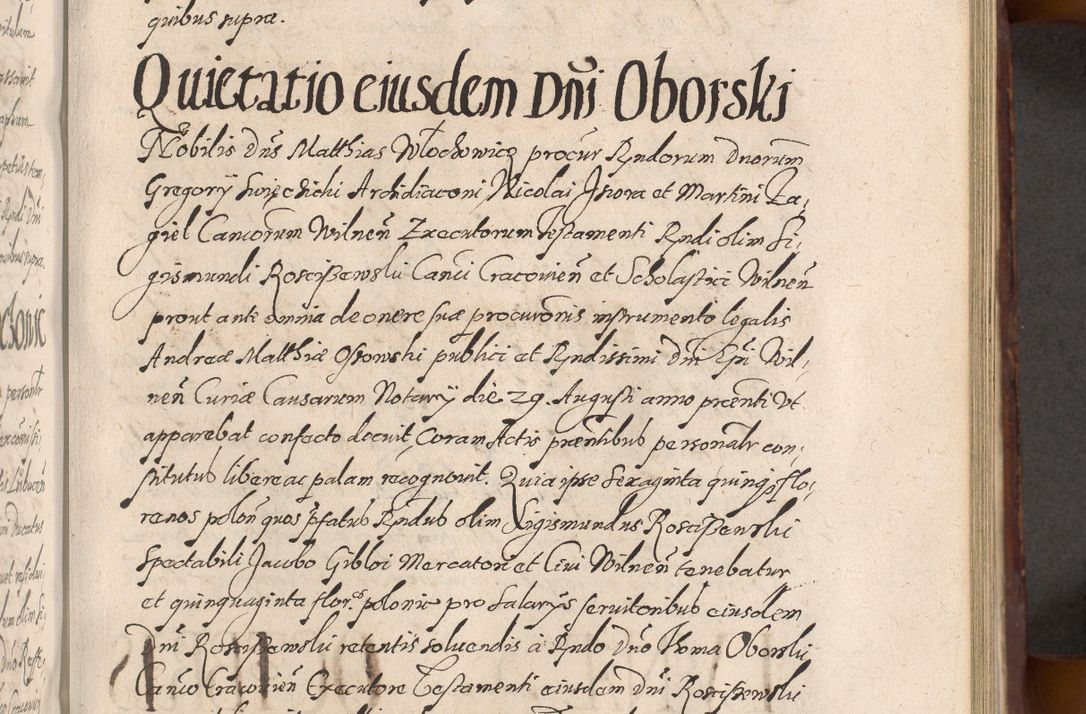 quibus supræ.
Quietatio eiusdem Dnĩ Oborski
Nobilis Dñs Matthias Włochowicz procũr Rndorum Dnorum
Gregorÿ Swięchichi Archidiaconi Nicolai Isiora et Martini Za,
giel Canc̃orum Wilneñ Executorum testamenti Rndi olim Si,
gismundi Rosciszewski Canci Cracovieñ et Scholastici Wilneñ
prout ante omnia de onere suæ procuronis instrumento legalis
Andreæ Matthiæ Ossowski publici et Rndissimi Dni Epi Wil,
neñ Curiæ Causarum Notarÿ die 29. Augusti anno præsenti Vt
apparebat confacto docuit, Coram Actis præntibus personalr con,
stitutus libere ac palam recognovit. Quia ipse sexaginta quinq; flo,
renos poloñ quos p̃fatus Rndus olim Sigismundus Rosciszewski
Spectabili Jacobo Gibloi Mercatori et Civi Wilneñ tenebatur
et quinquaginta flor. polonic pro salarÿs servitoribus eiusdem
Dni Rosciszewski retentis solvendis à Rndo Dño Thoma Oborski
Canco Cracovieñ Executore Testamenti eiusdem Dni Rosciszewski